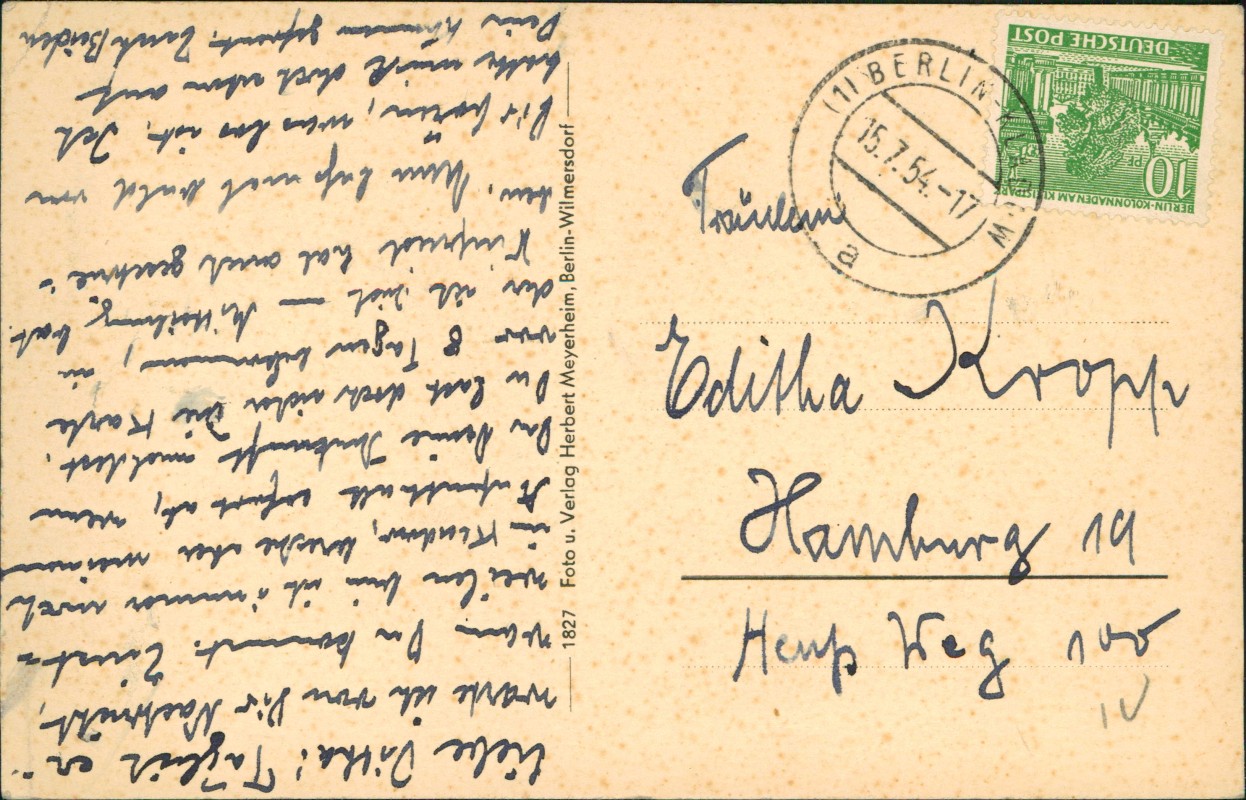 Liebe Ditha! Täglich er-
warte ich von Dir Nachricht,
wann Du kommst. Einst-
weilen bin ich immer noch
in Kladow, breche aber meinen
Aufenthalt sofort ab, wenn
Du Deine Ankunft meldest.
Du hast doch sicher die Karte
vor 8 Tagen bekommen, in
der ich Dich — Mitteilung bat.
Winfried hat auch geschrie-
ben. Nun laß mal bald von
Dir hören, was los ist. Ich
hatte mich doch schon auf
Dein Kommen gefreut.
1827 Foto u. Verlag Herbert Meyerheim, Berlin-Wilmersdorf
DEUTSCHE POST
10 PF
BERLIN-KOLONNADEN AM KLEISTPARK
(1) BERLIN
15.7.54.-17
a
Fräulein
Editha Kropp
Hamburg 19
Henß Weg 100